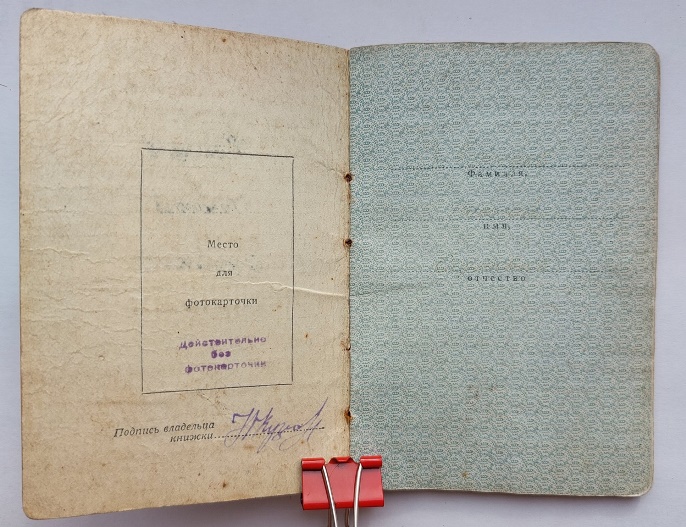 Место
для
фотокарточки
Действительно
без
фотокарточки
Подпись владельца
книжки
Фамилия,
имя,
отчество